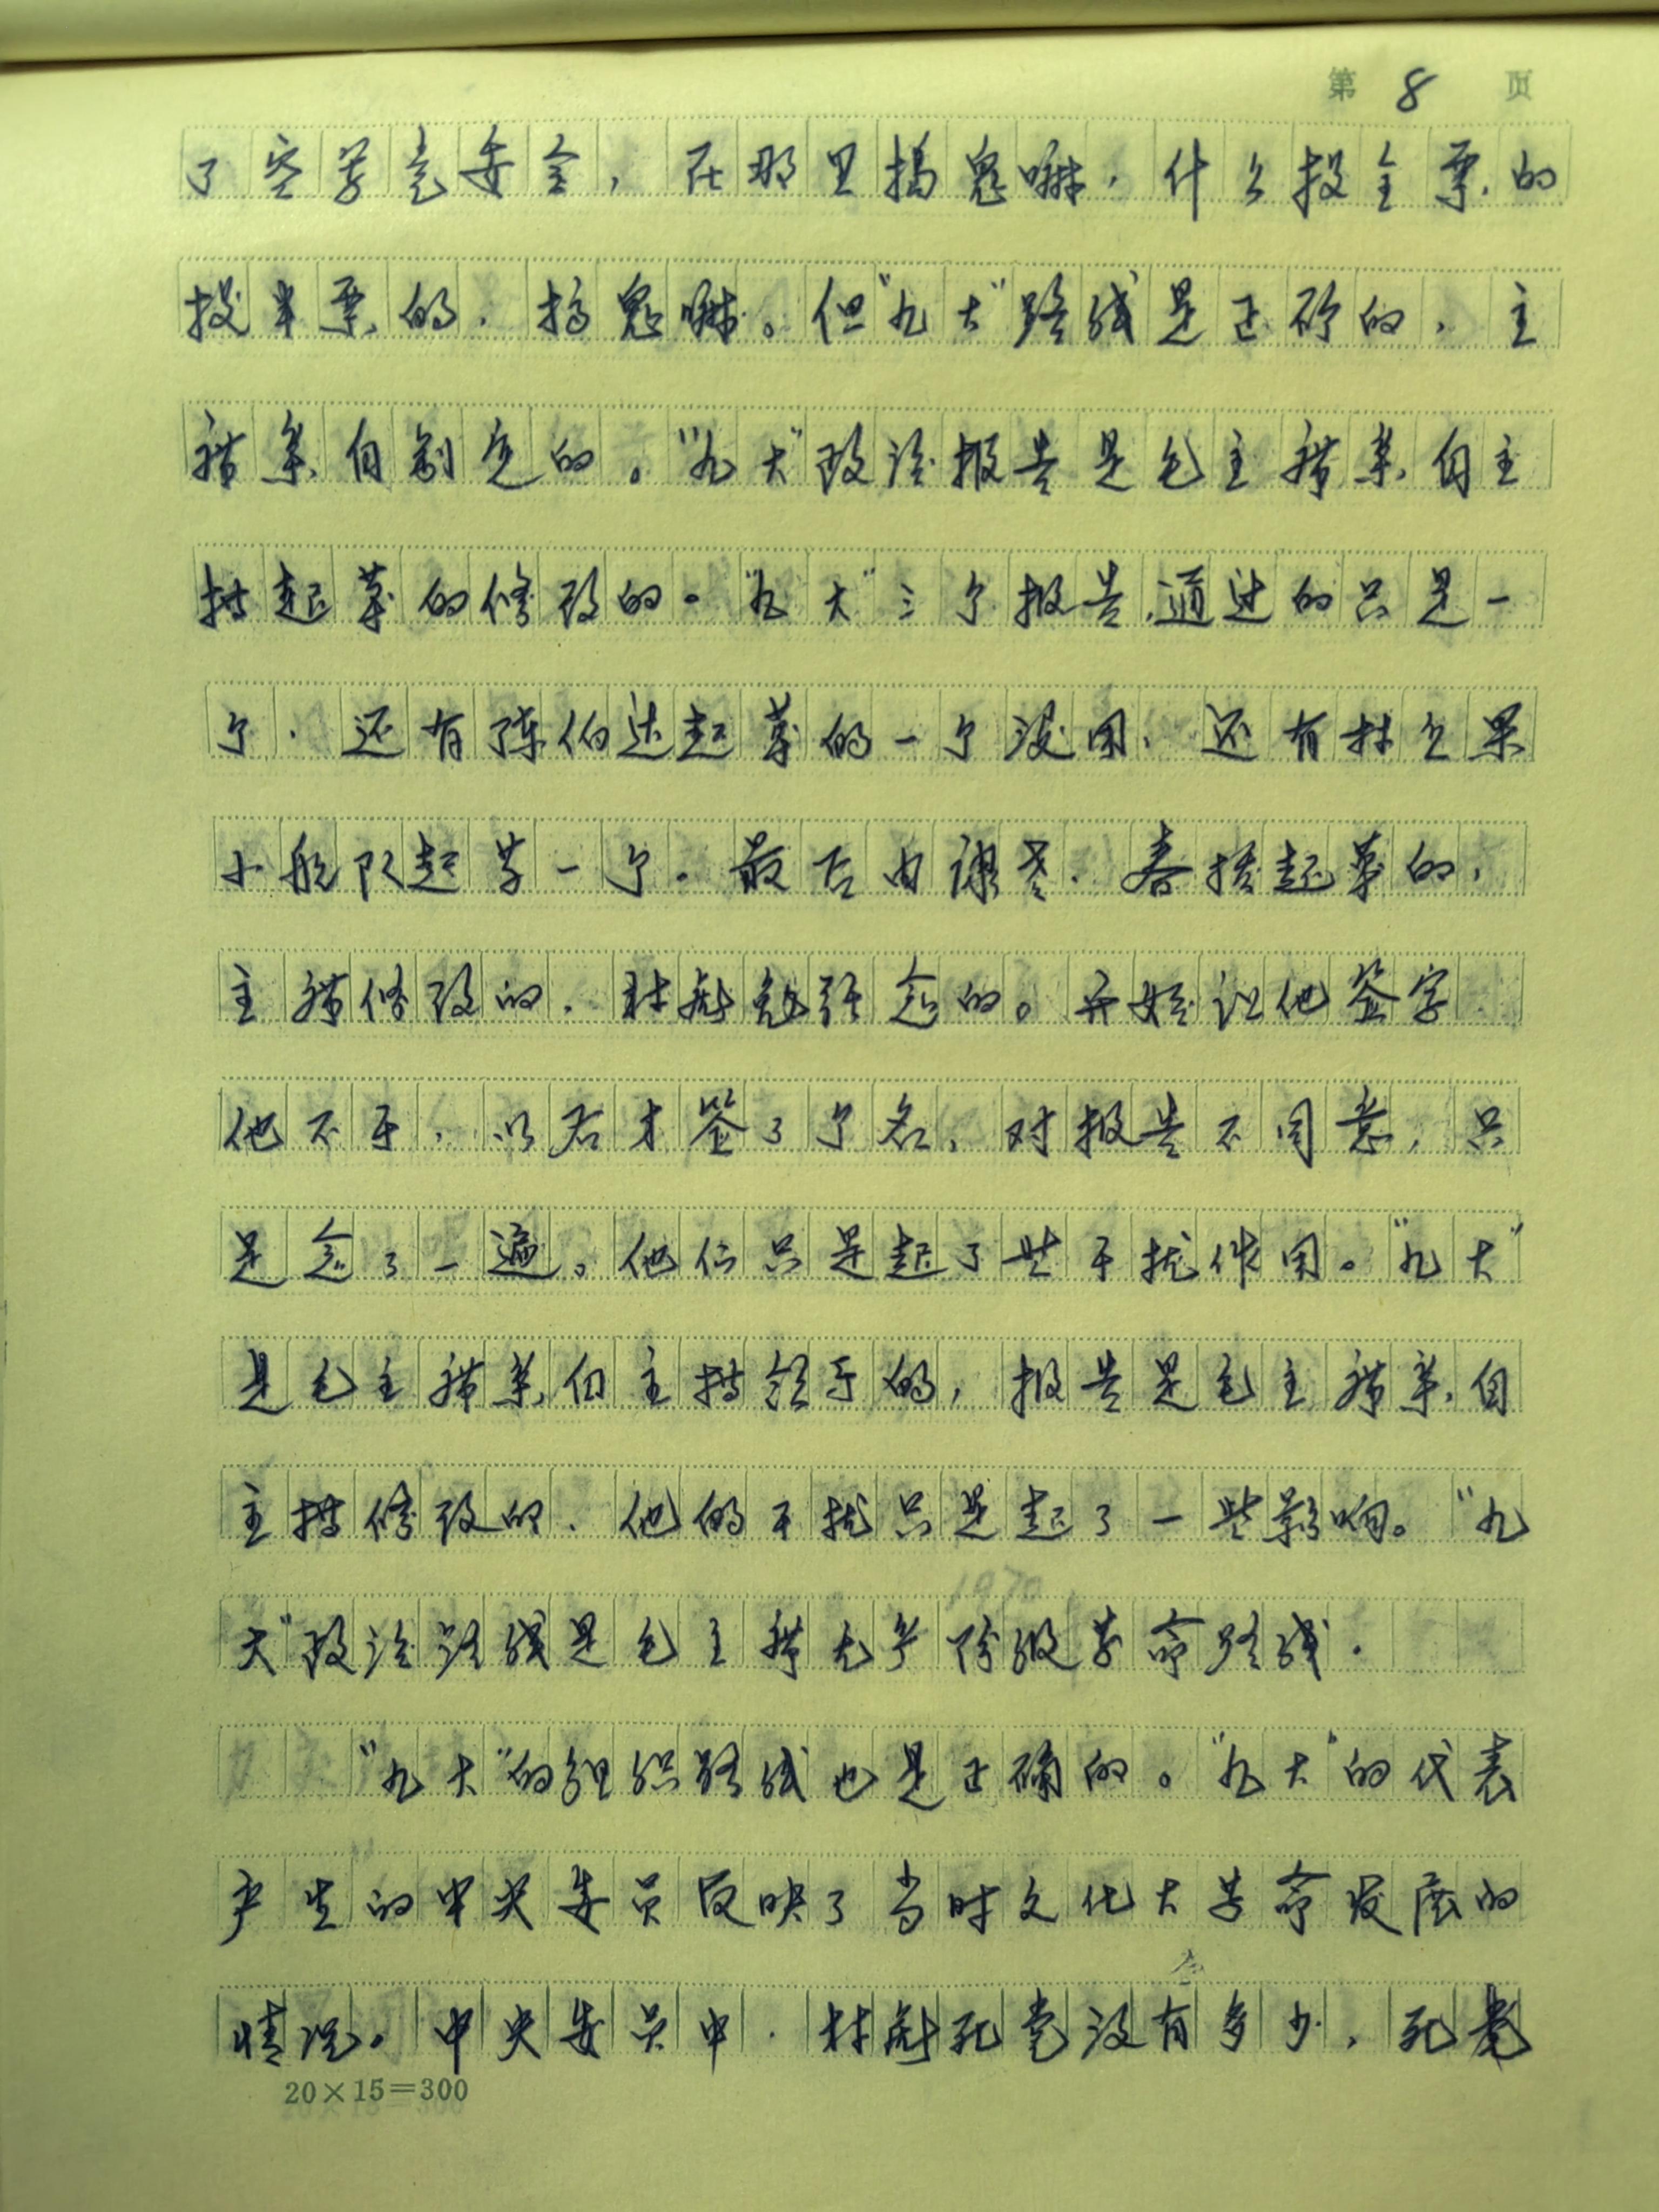 第 8 页
了空军党委会，在那里搞鬼嘛，什么投全票的
投半票的，搞鬼嘛。但“九大”路线是正确的，主
席亲自制定的。“九大”政治报告是毛主席亲自主
持起草的修改的。“九大”三个报告，通过的只是一
个，还有陈伯达起草的一个没用，还有林立果
小舰队起草一个。最后由谬老、春桥起草的，
主席修改的，林彪勉强念的。开始让他签字
他不干，以后才签了个名，对报告不同意，只
是念了一遍。他们只是起了些干扰作用。“九大”
是毛主席亲自主持领导的，报告是毛主席亲自
主持修改的，他的干扰只是起了一些影响。“九
1970
大”政治路线是毛主席无产阶级革命路线。
“九大”的组织路线也是正确的。“九大”的代表
产生的中央委员反映了当时文化大革命发展的
情况。中央委员中，林彪死党没有多少，死党
20×15=300